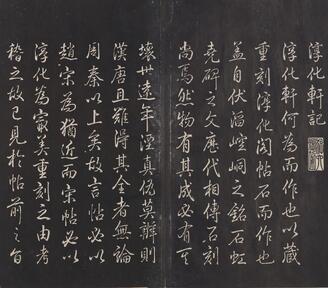 淳化軒記
淳化軒何為而作也以藏
重刻淳化閣帖石而作也
蓋自伏羲崆峒之銘石虹
堯碑之文歷代相傳石刻
尚焉然物有其成必有其
壞世遠年湮真偽莫辨則
漢唐且難得其全者無論
周秦以上矣故言帖必以
趙宋為猶近而宋帖必以
淳化為最美重刻之由考
稽之故已見於帖前之旨